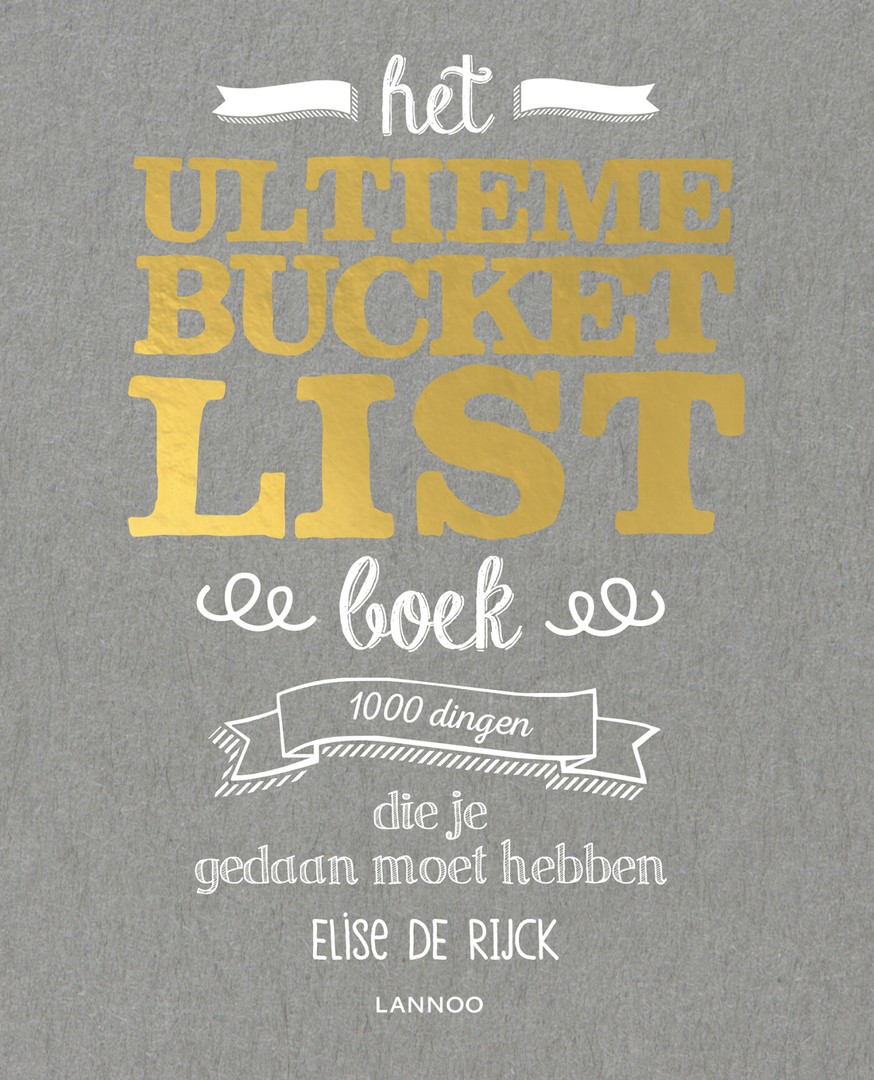 het
ULTIEME
BUCKET
LIST
boek
1000 dingen
die je
gedaan moet hebben
ELISE DE RIJCK
LANNOO